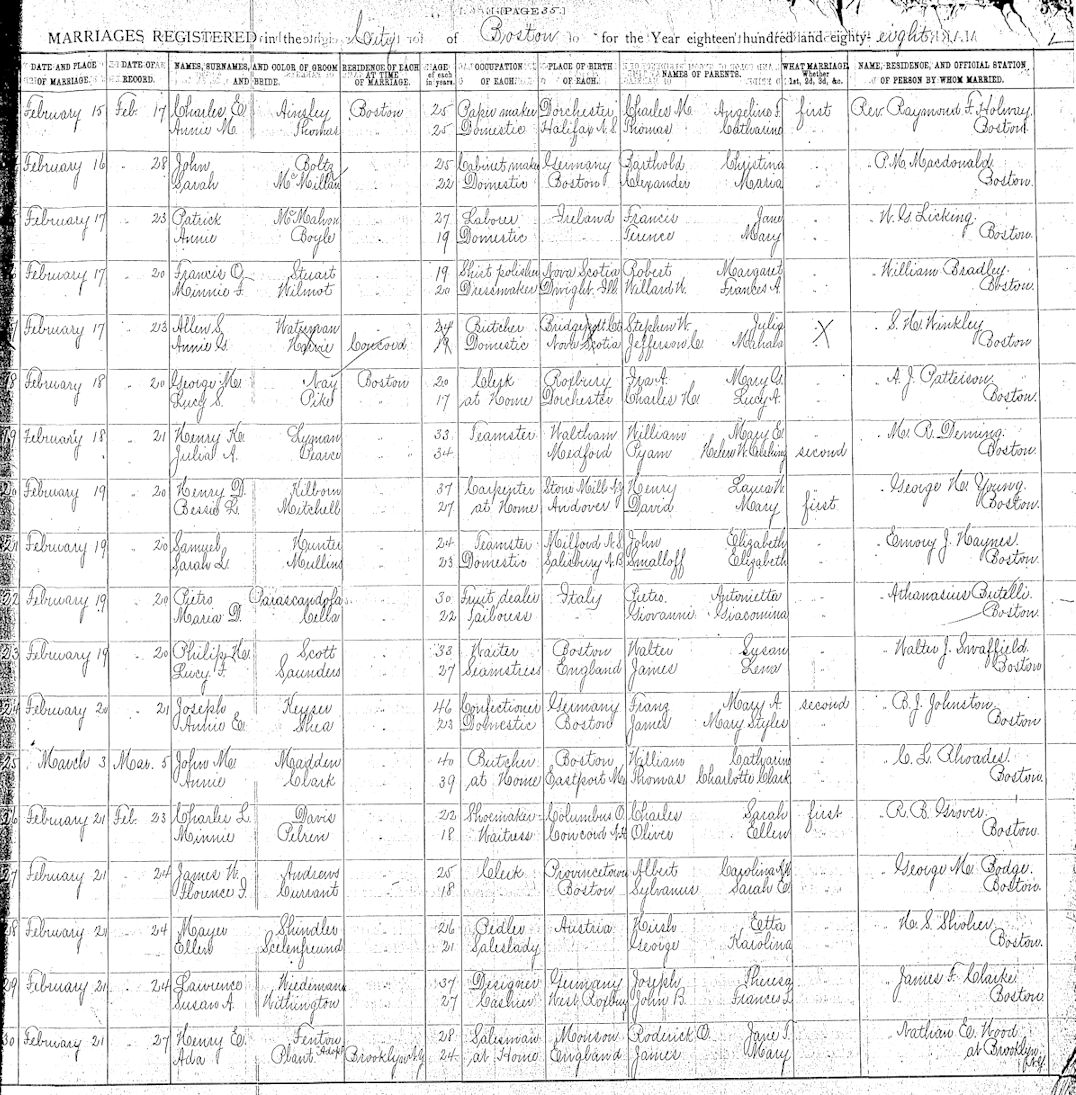 [PAGE 35.]
MARRIAGES REGISTERED in the City of Boston for the Year eighteen hundred and eighty-eight
DATE AND PLACE OF MARRIAGE. DATE OF RECORD. NAMES, SURNAMES, AND COLOR OF GROOM AND BRIDE. RESIDENCE OF EACH AT TIME OF MARRIAGE. AGE of each in years. OCCUPATION OF EACH. PLACE OF BIRTH OF EACH. NAMES OF PARENTS. WHAT MARRIAGE, Whether 1st, 2d, 3d, &c. NAME, RESIDENCE, AND OFFICIAL STATION OF PERSON BY WHOM MARRIED.
February 15 Feb. 17 Charles E. Ainsley Boston 25 Paper maker Dorchester Charles M. Angelina F. first Rev. Raymond F. Holway
Annie M. Thomas " 25 Domestic Halifax N.S. Thomas Catharine " Boston
February 16 " 28 John Boltz " 25 Cabinet maker Germany Barthold Christina " P. M. Macdonald
Sarah McMillan " 22 Domestic Boston Alexander Maria " Boston.
February 17 " 23 Patrick McMahon " 27 Laborer Ireland Francis Jane "
Annie Boyle " 19 Domestic " Terence Mary " Boston.
February 17 " 20 Francis O. Stuart " 19 Shirt polisher Nova Scotia Robert Margaret " William Bradley.
Minnie F. Wilmot " 20 Dressmaker Dwight Ill. Willard W. Frances A. " Boston.
February 17 " 23 Allen S. Waterman " 24 Butcher Bridgeport Ct. Stephen W. Julia X S. H. Winkley
Annie G. Concord 19 Domestic Nova Scotia Jefferson C. Mahala Boston
18 February 18 " 20 George M. Nay Boston 20 Clerk Roxbury Ira A. Mary G. " A. J. Patterson.
Lucy S. Pike " 17 at Home Dorchester Charles H. Lucy A. " Boston.
19 February 18 " 21 Henry K. Lyman " 33 Teamster Waltham William Mary E. " M. R. Deming.
Julia A. Pearce " 34 Medford Pyam Helen W. second Boston.
20 February 19 " 20 Henry D. Kilborn " 37 Carpenter Henry Laura W. " George H. Young.
Bessie L. Mitchell " 27 at Home Andover David Mary first Boston.
21 February 19 " 20 Samuel Hunter " 24 Teamster Milford N.S. John Elizabeth " Emory J. Haynes.
Sarah L. Mullins " 23 Domestic Salisbury N.B. Smalloff Elizabeth " Boston.
22 February 19 " 20 Pietro Parascandola " 30 Fruit dealer Italy Pietro. Antonietta " Athanasius Butelli.
Maria D. Cella " 22 Tailoress " Giovanni Giacomina " Boston.
23 February 19 " 20 Philip H. Scott " 33 Waiter Boston Walter Susan " Walter J. Swaffield.
Lucy F. Saunders " 27 Seamstress England James Lena " Boston
24 February 20 " 21 Joseph Keyser " 46 Confectioner Germany Franz Mary A. second B. J. Johnston.
Annie E. Shea " 23 Domestic Boston James Mary Styles " Boston
25 March 3 Mar. 5 John M. Madden " 40 Butcher Boston William Catharine " C. L. Rhoades.
Annie Clark " 39 at Home Eastport Me. Thomas Charlotte Clark " Boston.
26 February 21 Feb. 23 Charles L. Davis " 22 Shoemaker Columbus O. Charles Sarah first R. B. Grover.
Minnie Pelren " 18 Waitress Concord N.H. Oliver Ellen " Boston.
27 February 21 " 24 James W. Andrews " 25 Clerk Provincetown Albert Carolina " George M. Bodge.
Florence I. Currant " 18 Boston Sylvanus Sarah E. " Boston.
28 February 21 " 24 Mayer Shindler " 26 Pedler Austria Hirsh Etta " H. S. Shoher.
Ellen Seelenfreund " 21 Saleslady " George Karolina " Boston.
29 February 21 " 24 Lawrence Wiedemann " 37 Designer Germany Joseph Theresa " James F. Clarke
Susan A. Withington " 27 Cashier West Roxbury John B. Frances L. " Boston.
30 February 21 " 27 Henry E. Fenton " 28 Salesman Monson Roderick O. Jane T. " Nathan E. Wood
Ada Plant Adopt Brooklyn N.Y. 24 at Home England James Mary " at Brooklyn N.Y.